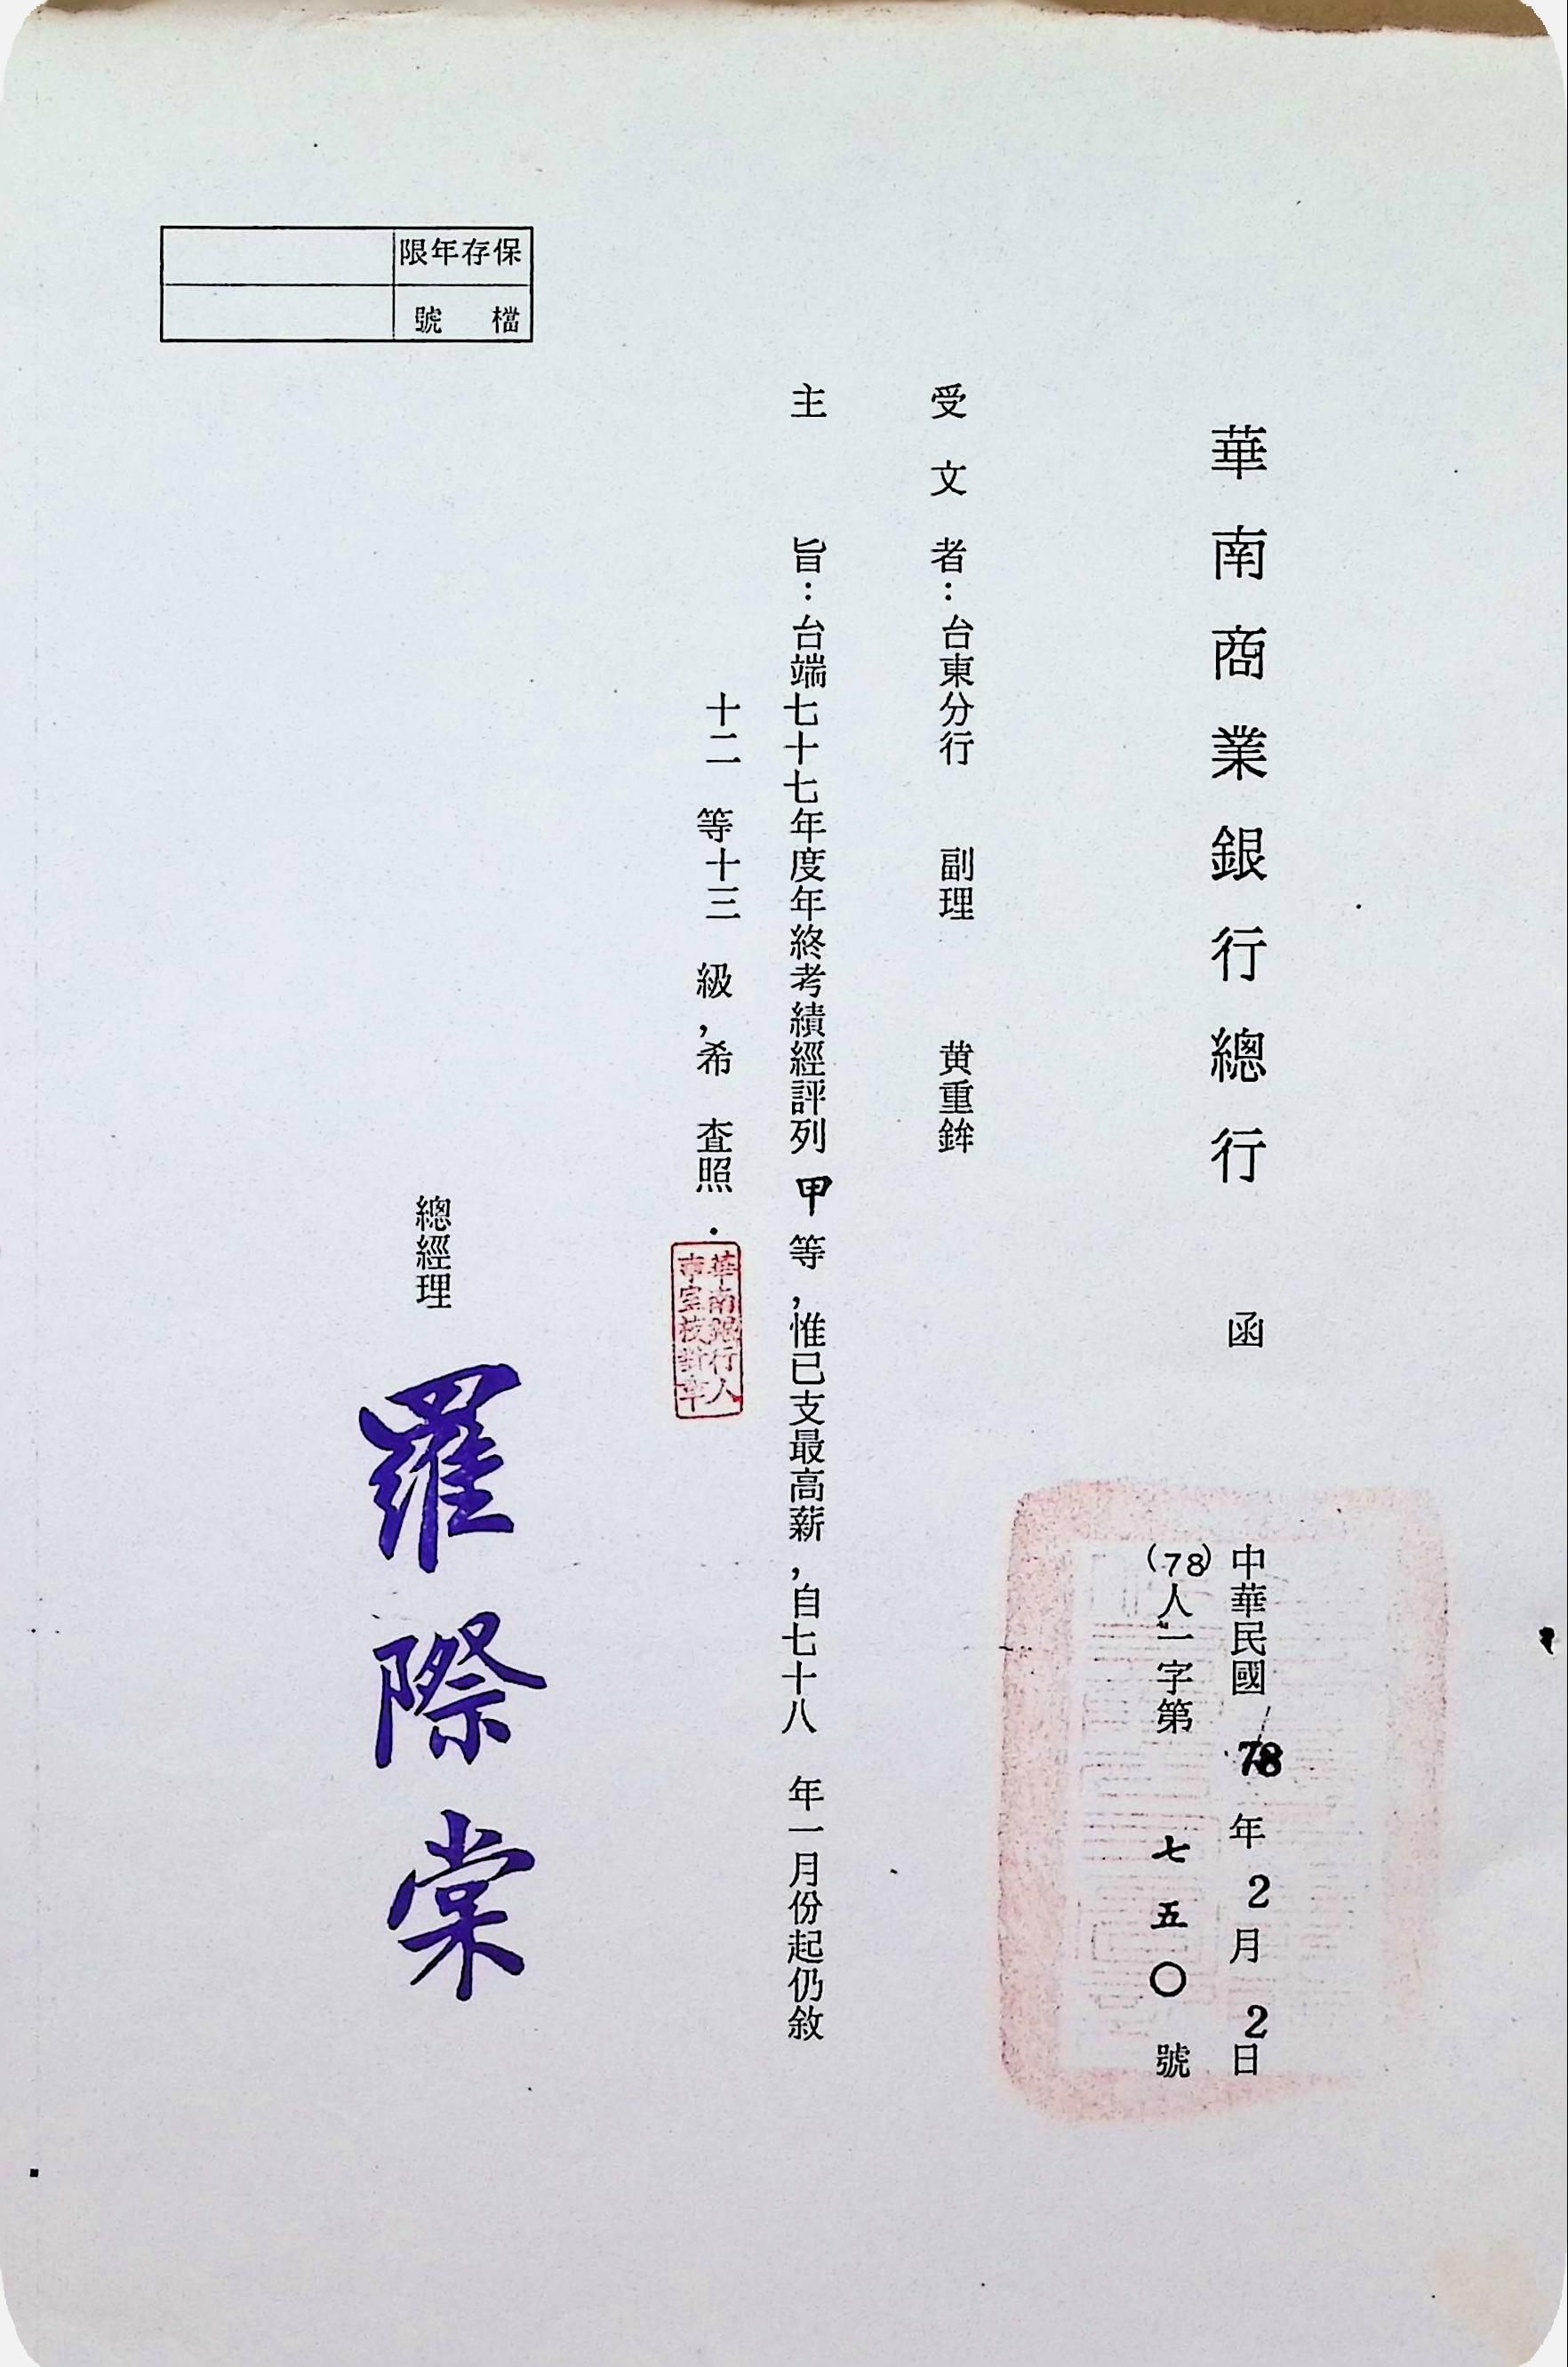 華南商業銀行總行　函
中華民國78年2月2日
(78)人一字第七五〇號
受文者：台東分行　副理　黄重鉾
主旨：台端七十七年度年終考績經評列甲等，惟已支最高薪，自七十八年一月份起仍敘
十二等十三級，希　查照．
華南銀行人
事室校對章
總經理　羅際棠
保存年限
檔號